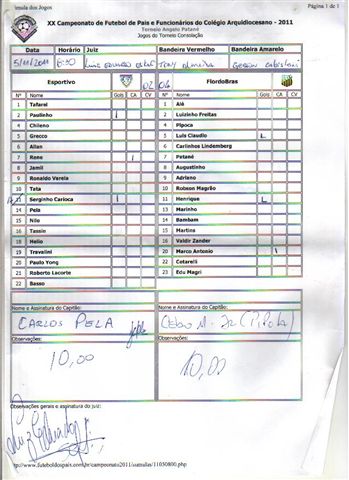 Súmula dos Jogos
Página 1 de 1
XX Campeonato de Futebol de Pais e Funcionários do Colégio Arquidiocesano - 2011
Torneio Angelo Patané
Jogos do Torneio Consolação
Data Horário Juiz Bandeira Vermelho Bandeira Amarelo
5/11/2011 Almeida
Esportivo 02 04 FlordoBras
Nº Nome Gols CA CV Nº Nome Gols CA CV
1 Tafarel 1 Alê
2 Paulinho I 2 Luizinho Freitas
4 Chileno 4 Pipoca
5 Grecco 3 Luis Claudio L
6 Allan 6 Carlinhos Lindemberg
7 Rene I 7 Patané
8 Jamil 8 Augustinho
9 Ronaldo Varela 9 Adriano
10 Tata 10 Robson Magrão
Serginho Carioca I 11 Henrique L
14 Pela 13 Marinho
15 Nilo 14 Bambam
16 Tassio 15 Martins
18 Helio 16 Valdir Zander
19 Travalini 20 Marco Antonio I
20 Paulo Yong 22 Catarelli
21 Roberto Lacorte 23 Edu Magri
22 Basso
Nome e Assinatura do Capitão: Nome e Assinatura do Capitão:
CARLOS PELA
Observações: Observações:
10,00 10,00
Observações gerais e assinatura do juiz:
http://www.futeboldospais.com.br/campeonato2011/sumulas/11050800.php